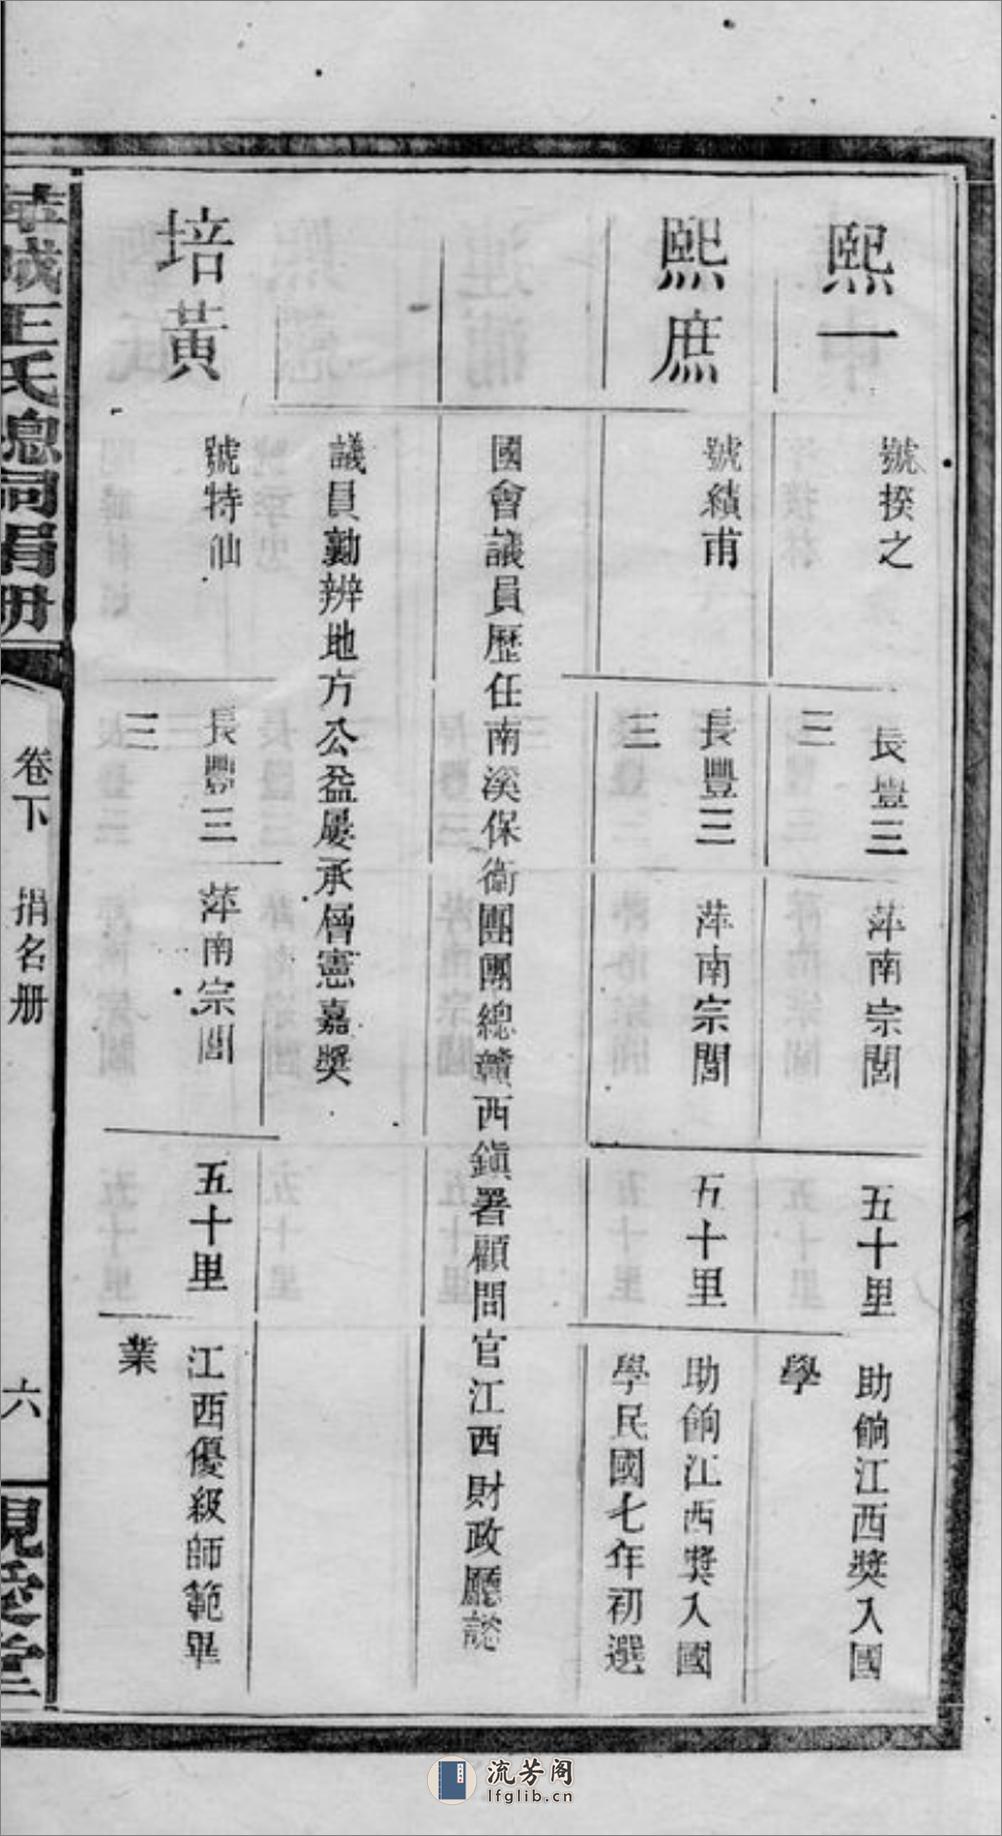 熙一
號揆之
長豊三
三
萍南宗閭
五十里
助餉江西獎入國
學
熙庶
號績甫
長豐三
三
萍南宗閭
五十里
助餉江西獎入國
學民國七年初選
國會議員歷任南溪保衞團團總贛西鎭署顧問官江西財政廳諮
議員勷辦地方公益屢承層憲嘉獎
培黃
號特仙
長豐三
三
萍南宗閭
五十里
江西優級師範畢
業
萃城王氏總祠捐册
卷下
捐名册
六
親愛堂
流芳阁
lfglib.cn